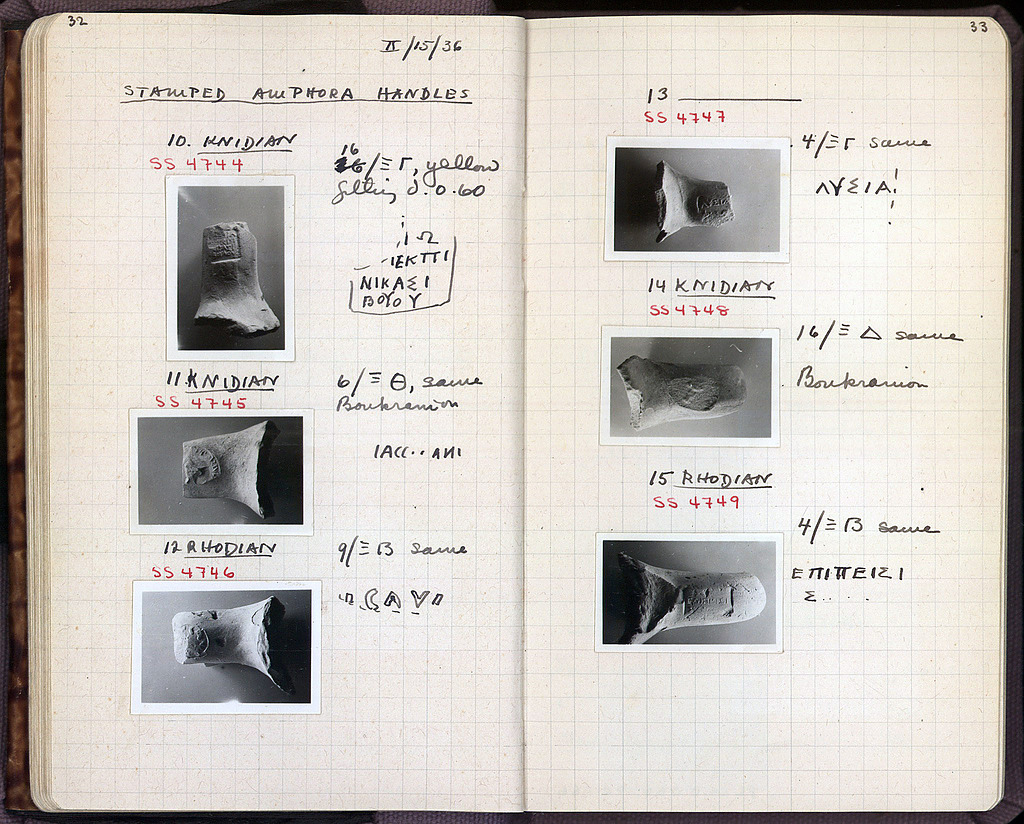 32
II/15/36
STAMPED AMPHORA HANDLES
10. KNIDIAN
SS 4744
16
/Ξ Γ, yellow
0.60
ΙΩ
ΙΕΚΠΙ
ΝΙΚΑΣΙ
ΒΟΥΟΥ
11. KNIDIAN
SS 4745
6/Ξ Θ, same
Boukranion
ΙΑСС··ΑΝΙ
12 RHODIAN
SS 4746
9/Ξ Β same
33
13
SS 4747
4/Ξ Γ same
ΛΥΣΙΑ
14 KNIDIAN
SS 4748
16/Ξ Δ same
Boukranion
15 RHODIAN
SS 4749
4/Ξ Β same
ΕΠΙΠΕΙΣΙ
Σ....